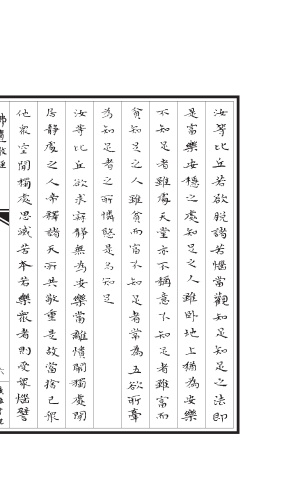 汝等比丘若欲脫諸苦惱當觀知足知足之法即
是富樂安穩之處知足之人雖卧地上猶為安樂
不知足者雖處天堂亦不稱意不知足者雖富而
貧知足之人雖貧而富不知足者常為五欲所牽
為知足者之所憐愍是名知足
汝等比丘欲求寂靜無為安樂當離憒閙獨處閑
居靜處之人帝釋諸天所共敬重是故當捨己眾
他眾空閒獨處思滅苦本若樂眾者則受眾惱譬
六